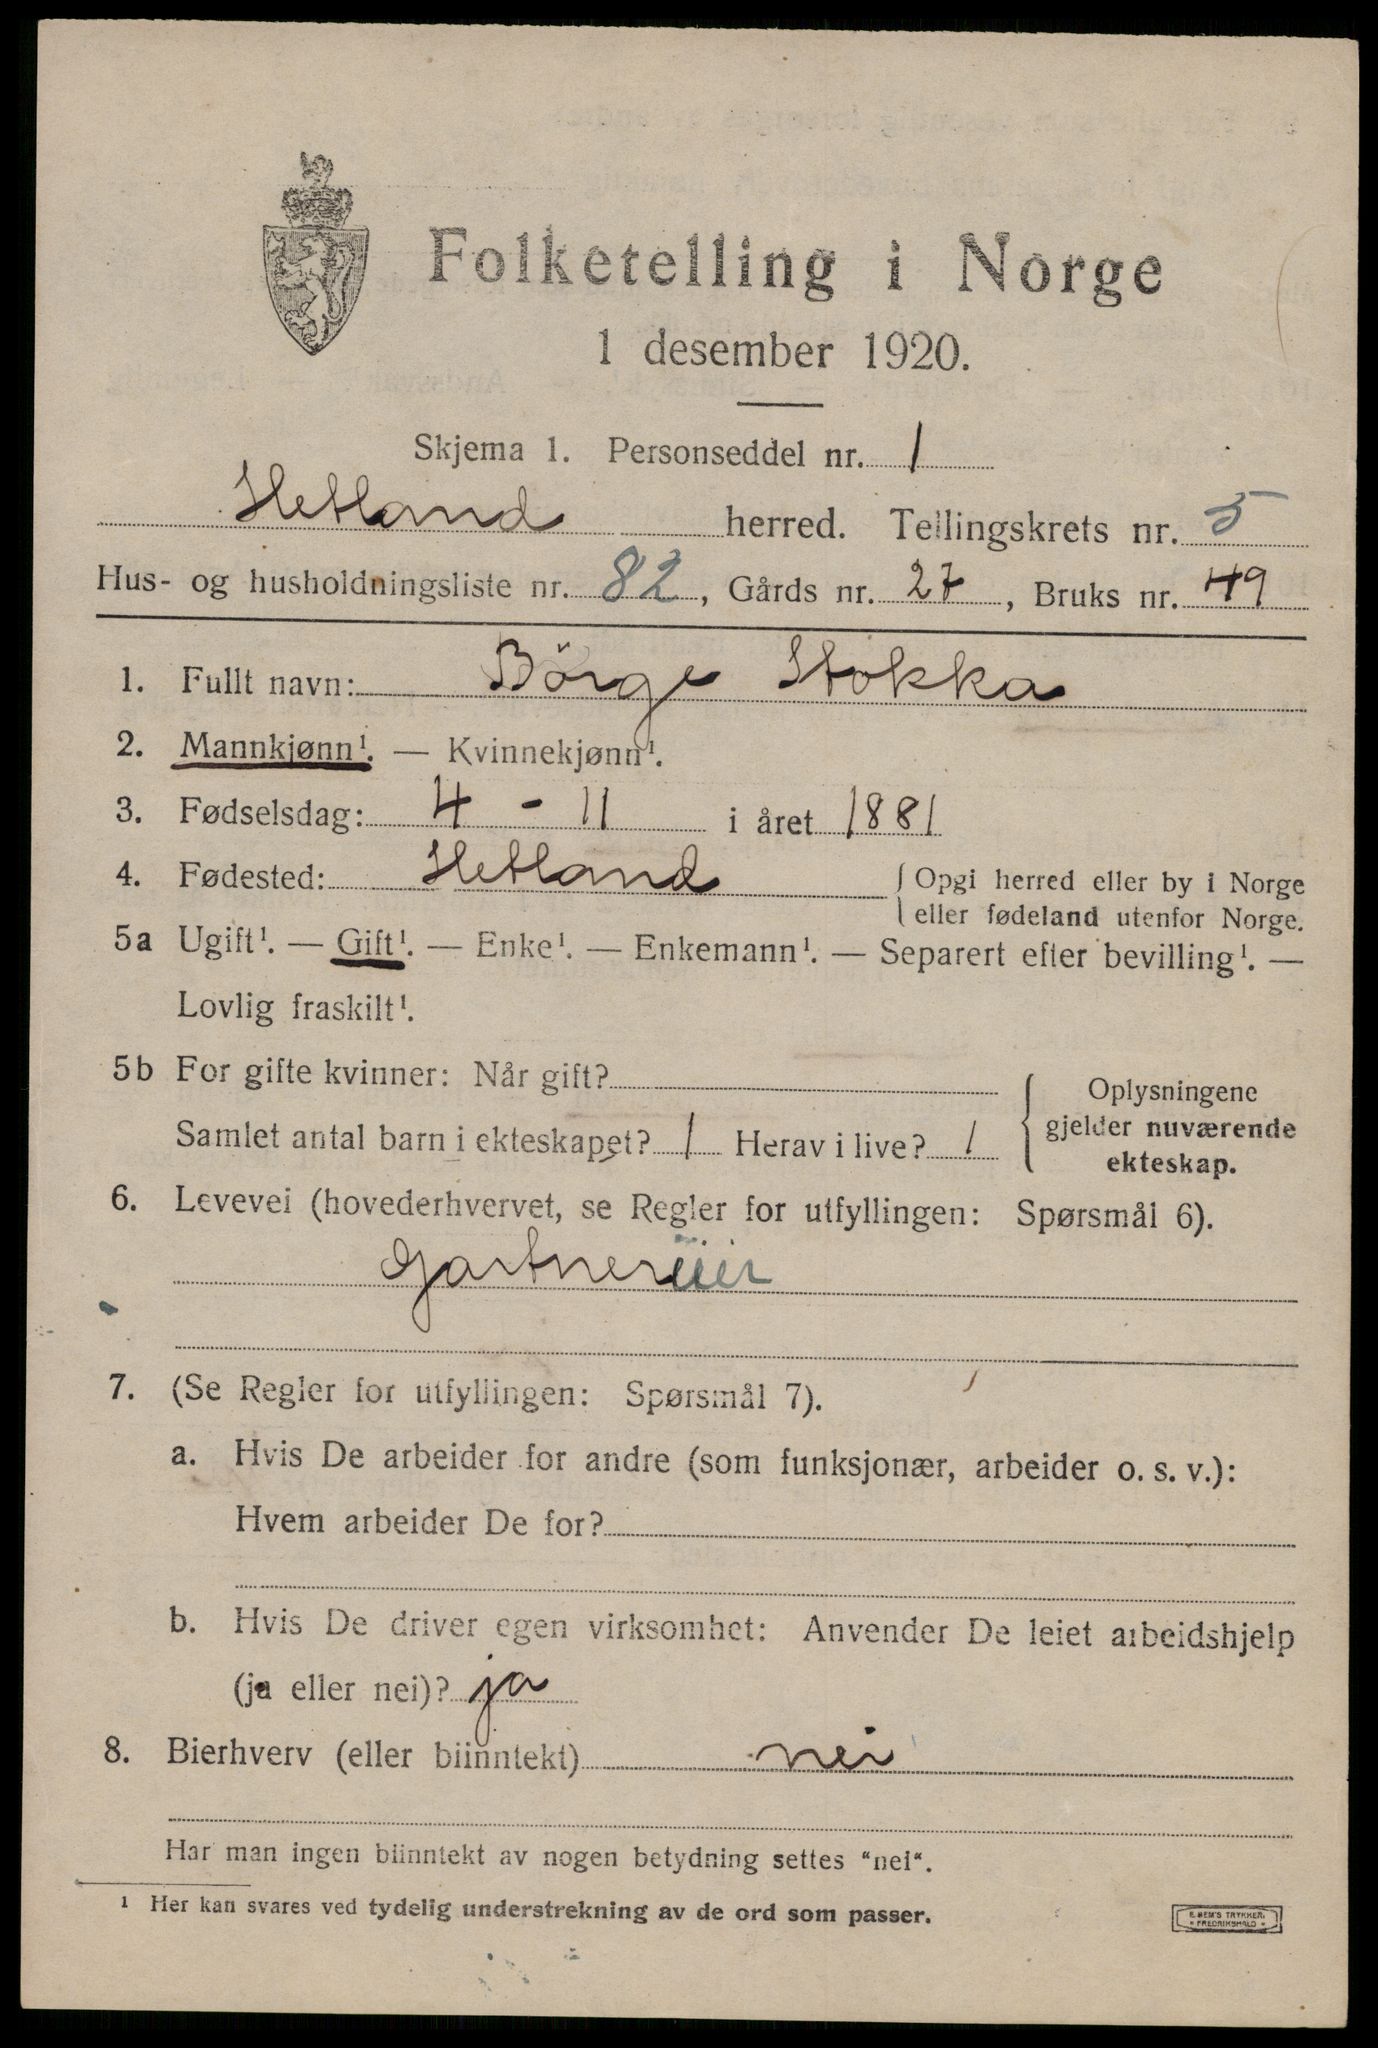 Folketelling i Norge
1 desember 1920.
Skjema 1. Personseddel nr. 1
Hetland herred. Tellingskrets nr. 5
Hus- og husholdningsliste nr. 82, Gårds nr. 27, Bruks nr. 49
1. Fullt navn: Börge Stokka
2. Mannkjønn¹. — Kvinnekjønn¹.
3. Fødselsdag: 4 - 11 i året 1881
4. Fødested: Hetland { Opgi herred eller by i Norge
eller fødeland utenfor Norge.
5a Ugift¹. — Gift¹. — Enke¹. — Enkemann¹. — Separert efter bevilling¹. —
Lovlig fraskilt¹.
5b For gifte kvinner: Når gift?
Samlet antal barn i ekteskapet? 1 Herav i live? 1
{ Oplysningene
gjelder nuværende
ekteskap.
6. Levevei (hovederhvervet, se Regler for utfyllingen: Spørsmål 6).
Gartner
7. (Se Regler for utfyllingen: Spørsmål 7).
a. Hvis De arbeider for andre (som funksjonær, arbeider o. s. v.):
Hvem arbeider De for?
b. Hvis De driver egen virksomhet: Anvender De leiet arbeidshjelp
(ja eller nei)? ja
8. Bierhverv (eller biinntekt) nei
Har man ingen biinntekt av nogen betydning settes "nei".
¹ Her kan svares ved tydelig understrekning av de ord som passer.
E. SEM'S TRYKKERI
FREDRIKSHALD